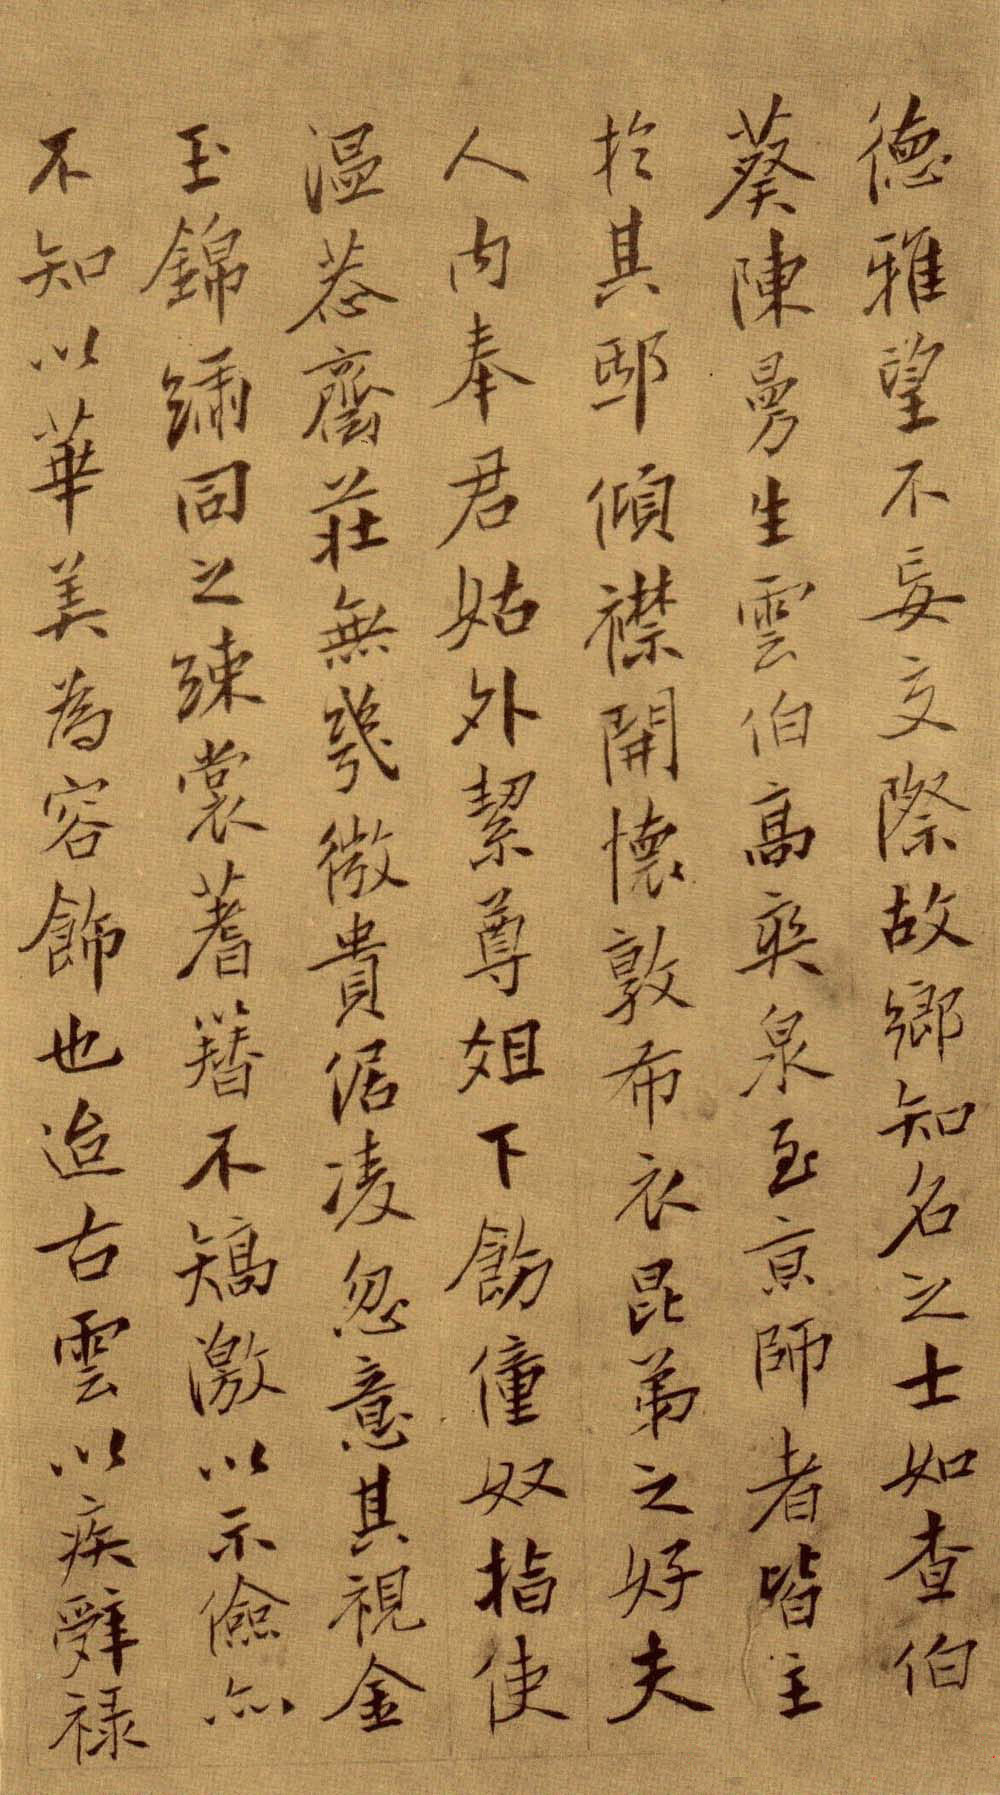 德雅望不妄交際故鄉知名之士如查伯
葵陳曼生雲伯高爽泉至京師者皆主
於其邸傾襟開懷敦布衣昆弟之好夫
人內奉君姑外絜尊姐下飭僮奴指使
溫恭齋莊無幾微貴倨凌忽意其視金
玉錦繡同之練裳蓍簪不矯激以示儉亦
不知以華美為容飾也迨古雲以疾辭祿